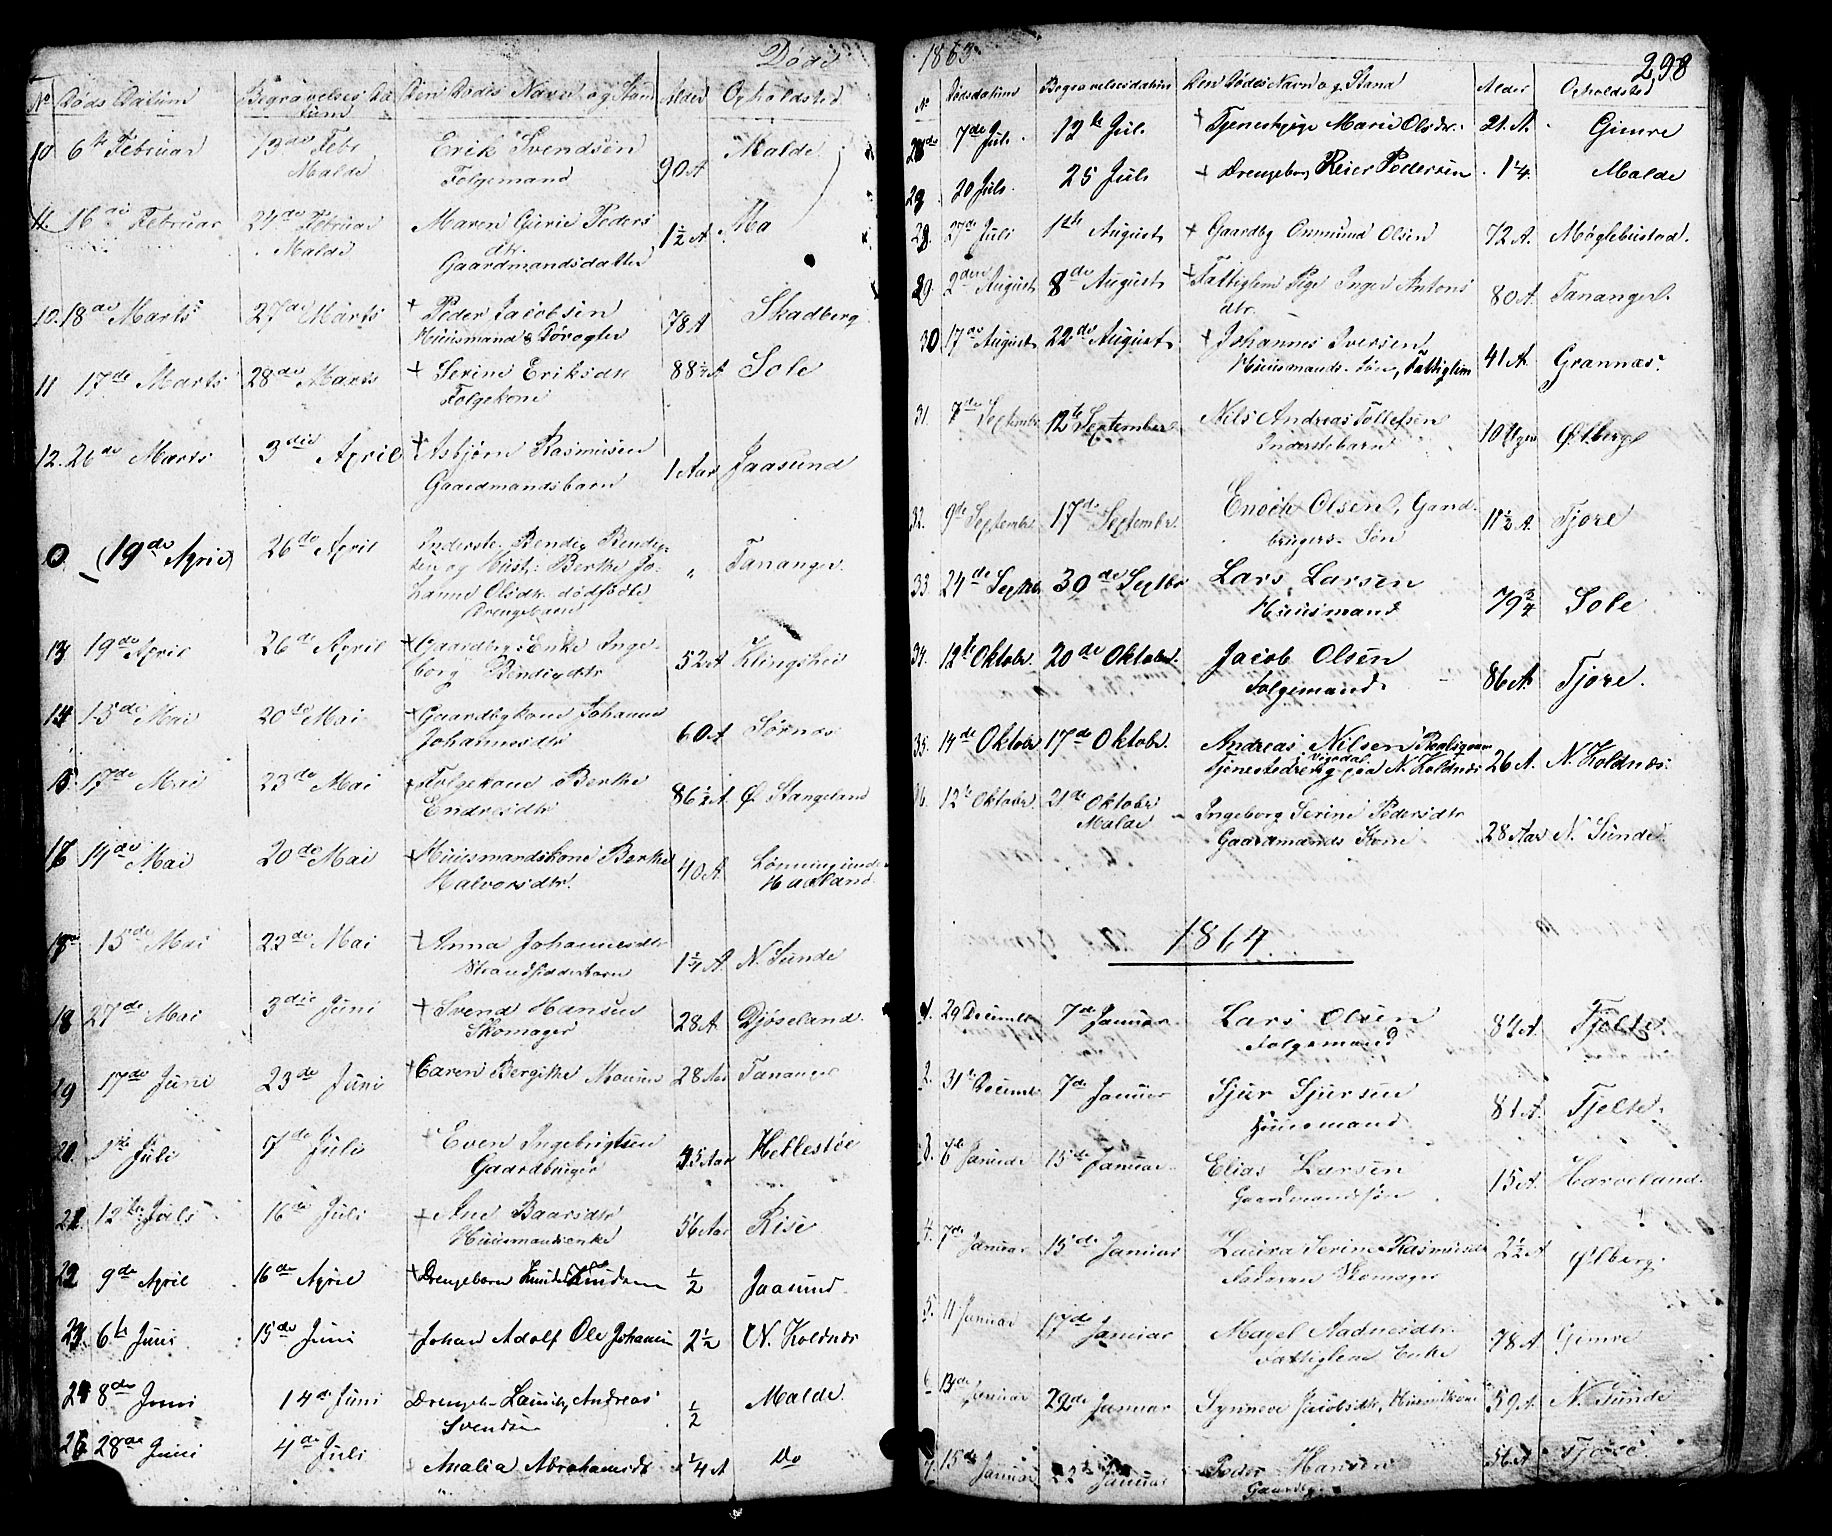 Døde
No Døds Datum Begravelses Datum Den Dødes Navn og Stand Alder Opholdsted
10 6te Februar 13de Febr Malde Erik Svendsen Folgemand 90 A Malde
11. 16de Februar 24de Februar Malde Maren Gurie Peders dtr. Gaardmandsdatter 1½ A Ma
10. 18de Marts 27de Marts + Peder Jacobsen Huusmand 78 A Skadberg
11 17de Marts 28de Marts + Serine Eriksdtr Folgekone 88 A Sole
12. 26de Marts 3die April + Asbjørn Rasmusen Gaardmandsbarn 1 Aar Jaasund
0 (19de April) 26de April Inderste Bendig Bendigsen og Hust: Berthe Johanne Olsdtr. dødfødte Drengebarn " Tananger
13 19de April 26de April + Gaardbr: Enke Ingeborg Bendigdtr 52 A Klingshei
14 15de Mai 20de Mai + Gaardbgkone Johanne Johannesdtr 60 A Sørnæs
15. 17de Mai 23de Mai + Folgekone Berthe Endresdtr 86½ A Ø. Stangeland
16 14de Mai 20de Mai + Huusmandskone Berthe Halvorsdtr. 40 A Lønning under Haaland
17 15de Mai 22de Mai + Anna Johannesdtr Strandsidderbarn 1¼ A N. Sunde
18 27de Mai 3die Juni + Svend Hansen Skomager 28 A Djøseland
19 17de Juni 23de Juni + Caren Bergithe Monsen 28 Aar Tananger
20. 1ste Juli 7de Juli + Even Ingebrigtsen Gaardbruger 45 Aar Hellestøe
21 12te Juli 16de Juli + Ane Baarsdtr Huusmandsenke 56 Aar Risé
22 9de April 16de April + Drengebarn Knud Knudsen ½ Jaasund
23. 6te Juni 15de Juni + Johan Adolf Ole Johannes 2½ N. Koldnæs
24 8de Juni 14de Juni + Drengeb. Andreas Svendsen ½ Malde
25 28de Juni 4de Juli + Analia Abrahamsdtr ¼ A Do
1863 298
No Dødsdatum Begravelsesdatum Den Dødes Navn og Stand Alder Opholdsted
26 7de Juli 12te Juli + Tjenestepige Marie Olsdtr. 21 A. Gimre
20 Juli 25 Juli + Drengebarn Reier Pedersen 1¼ Malde
28. 27de Juli 1ste August + Gaardbg Onmund Olsen 72 A. Møglebustad.
29 2den August 8de August + Fattiglem Pige Inger Antons dtr. 80 A. Tananger.
30 17de August 22de August + Johannes Iversen Huusmands Søn, Fattiglem 41 A. Grannæs.
31. 7de September 12te September Nils Andreas Tollefsen Inderstebarn 10 Uger Ølberg
32. 9de Septembr 17de Septembr. Enoch Olsen, Gaardbrugers Søn 11½ A. Tjore
33. 24de Septbr 30de Septbr Lars Larsen Huusmand 79¾ Sole
34. 12te Oktobr. 20de Oktobr. Jacob Olsen Folgemand 86 A Tjore.
35. 14de Oktobr 17de Oktobr. Andreas Nilsen Tjenestedreng paa N. Koldnæs 26 A. N. Koldnæs.
36. 12te Oktobr 21de Oktobr Malde Ingeborg Serine Pedersdtr Gaardmands Kone 28 Aar N. Sunde
1864.
1. 29 Decembr 7de Januar Lars Olsen Folgemand 84 A. Tjelte
2. 31te Decembr 7de Januar Sjur Sjursen Huusmand 81 A. Tjelte
3. 6te Januar 15de Januar Elias Larsen Gaardmandsøn 15 A. Harveland.
4. 7de Januar 15de Januar Laura Serine Rasmusdtr Faderen Skomager 2½ A Ølberg
5. 11 Januar 17de Januar Magel Aadnesdtr. Fattiglem Enke 78 A. Gimre
6 13de Januar 22de Januar Synneve Jacobsdtr, Huusmkone 59 A. N. Sunde
7 15de Januar 22de Januar Peder Hansen Gaardbr. 56 A. Tjore